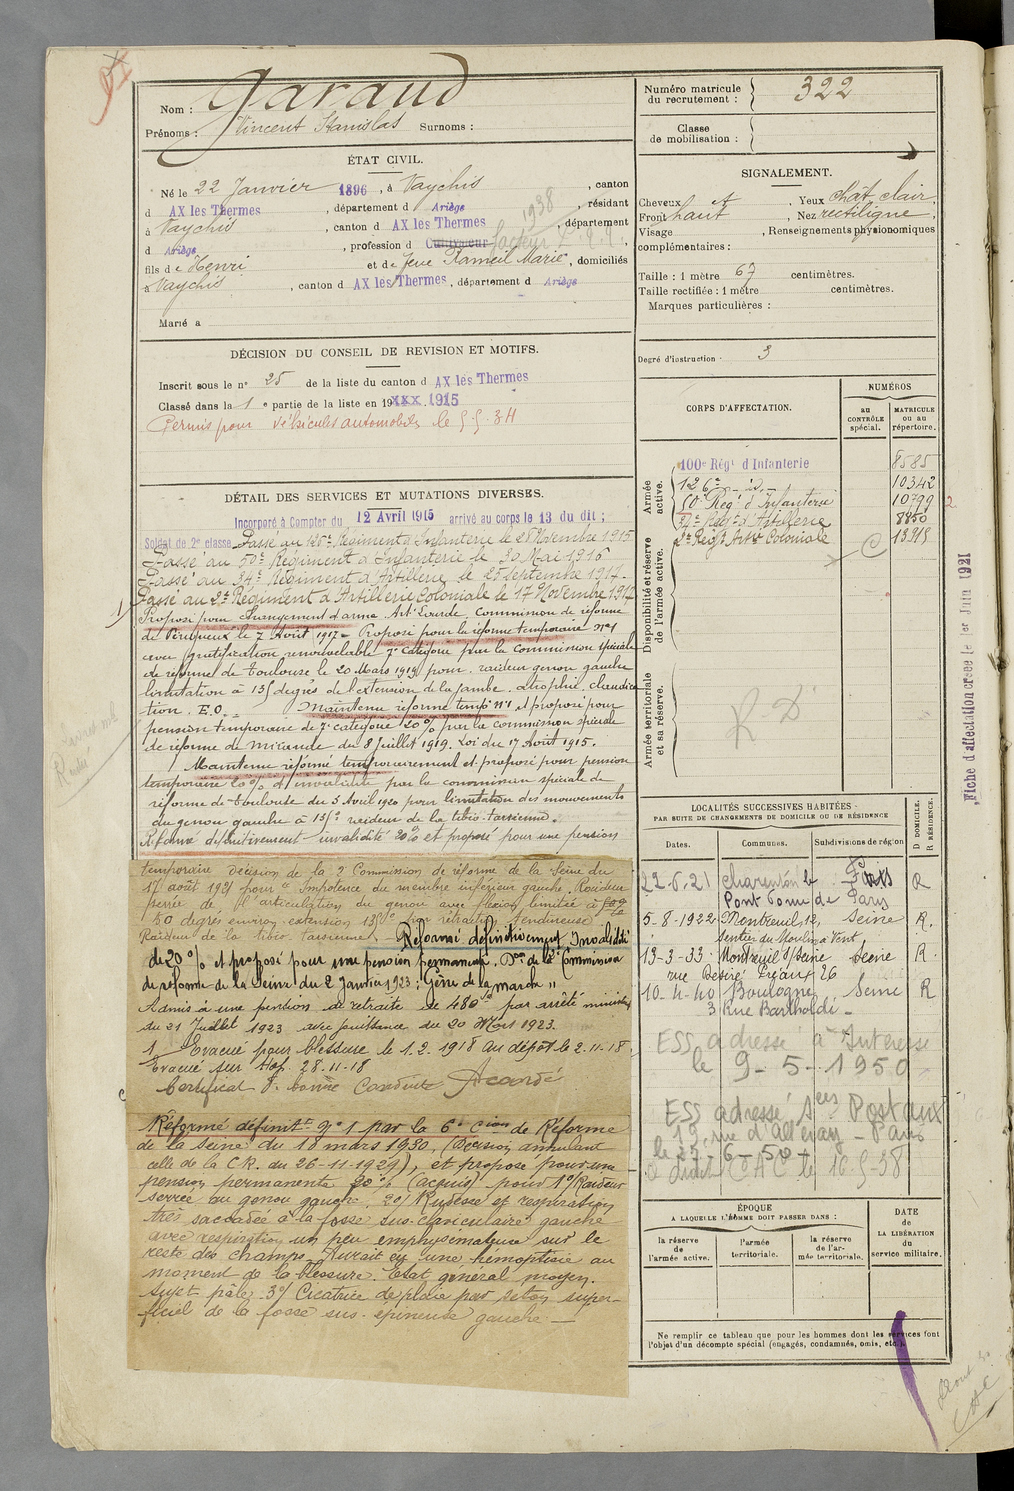 Nom : Garaud
Prénoms : Vincent Stanislas Surnoms :
Numéro matricule du recrutement : 322
Classe de mobilisation :
ÉTAT CIVIL.
Né le 22 Janvier 1896, à Vaychis, canton
d AX les Thermes, département d Ariège, résidant
à Vaychis, canton d AX les Thermes, département
d Ariège, profession d Cultivateur facteur 1938
fils de Henri et de feue Rameil Marie, domiciliés
à Vaychis, canton d AX les Thermes, département d Ariège
Marié a
DÉCISION DU CONSEIL DE REVISION ET MOTIFS.
Inscrit sous le n° 25 de la liste du canton d AX les Thermes
Classé dans la 1 e partie de la liste en 19XXX 1915
Permis pour véhicules automobiles le
DÉTAIL DES SERVICES ET MUTATIONS DIVERSES.
Incorporé à Compter du 12 Avril 1915 arrivé au corps le 13 du dit ;
Soldat de 2e classe Passé au 126e Régiment d'Infanterie le 28 Novembre 1915
Passé au 50e Régiment d'Infanterie le 30 Mai 1916
Passé au 34e Régiment d'Artillerie le 25 Septembre 1917
Passé au 2e Régiment d'Artillerie Coloniale le 17 Novembre 1917
Proposé pour changement d'arme Art. Lourde, Commission de réforme
de Périgueux le 7 Août 1917 - Proposé pour la réforme temporaire n°1
avec gratification renouvelable 7e catégorie par la Commission spéciale
de réforme de Toulouse le 20 Mars 1919 pour : raideur genou gauche
limitation à 135 degrés de l'extension de la jambe, atrophie, claudica
tion. E.O. Maintenu réforme temp. n°1 et proposé pour
pension temporaire de 7e catégorie 20% par la commission spéciale
de réforme de Mirande du 8 Juillet 1919. Loi du 17 Août 1915.
Maintenu réformé temporairement et proposé pour pension
temporaire 20% d'invalidité par la commission spéciale de
réforme de Toulouse du 3 Avril 1920 pour limitation des mouvements
du genou gauche à 135° raideur de la tibio-tarsienne.
Réformé définitivement invalidité 20% et proposé pour une pension
temporaire Décision de la 2 Commission de réforme de la Seine du
17 août 1921 pour Impotence du membre inférieur gauche. Raideur
serrée de l'articulation du genou avec flexion limitée à
60 degrés environ extension 135° par rétraction tendineuse
Raideur de la tibio tarsienne. Réformé définitivement Invalidité
de 20% et proposé pour une pension permanente. Don de la 2e Commission
de réforme de la Seine du 2 Janvier 1923 : Gêne de la marche "
Admis à une pension de retraite de 480f par arrêté ministériel
du 21 Juillet 1923 avec jouissance du 20 Mars 1923.
1 Evacué pour blessure le 1.2.1918 au dépôt le 2.11.18
Evacué sur Hop. 28-11-18
Certificat de bonne Conduite Accordé
Réformé définitt N°1 par la 6e Cion de Réforme
de la Seine du 18 mars 1930, (décision annulant
celle de la C.R. du 26-11-1929), et proposé pour une
pension permanente 20% (acquis) pour 1°/ Raideur
serrée au genou gauche. 2°/ Rudesse et respiration
très saccadée à la fosse sus-claviculaire gauche
avec respiration un peu emphysémateuse sur le
reste des champs. Aurait eu une hémoptisie au
moment de la blessure. Etat général moyen.
Sujet pâle. 3°/ Cicatrice de plaie par séton super-
ficiel de la fosse sus-épineuse gauche.
SIGNALEMENT.
Cheveux Yeux chât clair,
Front haut, Nez rectiligne,
Visage , Renseignements physionomiques
complémentaires :
Taille : 1 mètre 67 centimètres.
Taille rectifiée : 1 mètre centimètres.
Marques particulières :
Degré d'instruction 3
CORPS D'AFFECTATION.
NUMÉROS
AU CONTRÔLE spécial.
MATRICULE ou au répertoire.
Armée active.
100e Régt d'Infanterie 8585
126e id 10342
50e Reg. d'Infanterie 10799
34e Régt d'Artillerie 8850
2e Régt Artie Coloniale 13915
Disponibilité et réserve de l'armée active.
Armée territoriale et sa réserve.
RD
Fiche d'affectation créée le 1er Juin 1921
LOCALITÉS SUCCESSIVES HABITÉES
PAR SUITE DE CHANGEMENTS DE DOMICILE OU DE RÉSIDENCE
Dates. Communes. Subdivisions de région
D DOMICILE. R RÉSIDENCE.
22-6-21 Charenton le Pont Paris R
5-8-1922 Montreuil 12, Seine R.
Sentier du Moulin à Vent
13-3-33 Montreuil s/Seine Seine R.
rue Désiré Préaux 26
10-4-40 Boulogne Seine R
3 Rue Bartholdi -
ESS adressé à
le 9-5-1950
ESS adressé Postaux
Paris
le 27-6-50
CAC le 16-5-38
ÉPOQUE
A LAQUELLE L'HOMME DOIT PASSER DANS :
la réserve de l'armée active.
l'armée territoriale.
la réserve de l'armée territoriale.
DATE de LA LIBÉRATION du service militaire.
Ne remplir ce tableau que pour les hommes dont les services font
l'objet d'un décompte spécial (engagés, condamnés, omis, etc.).